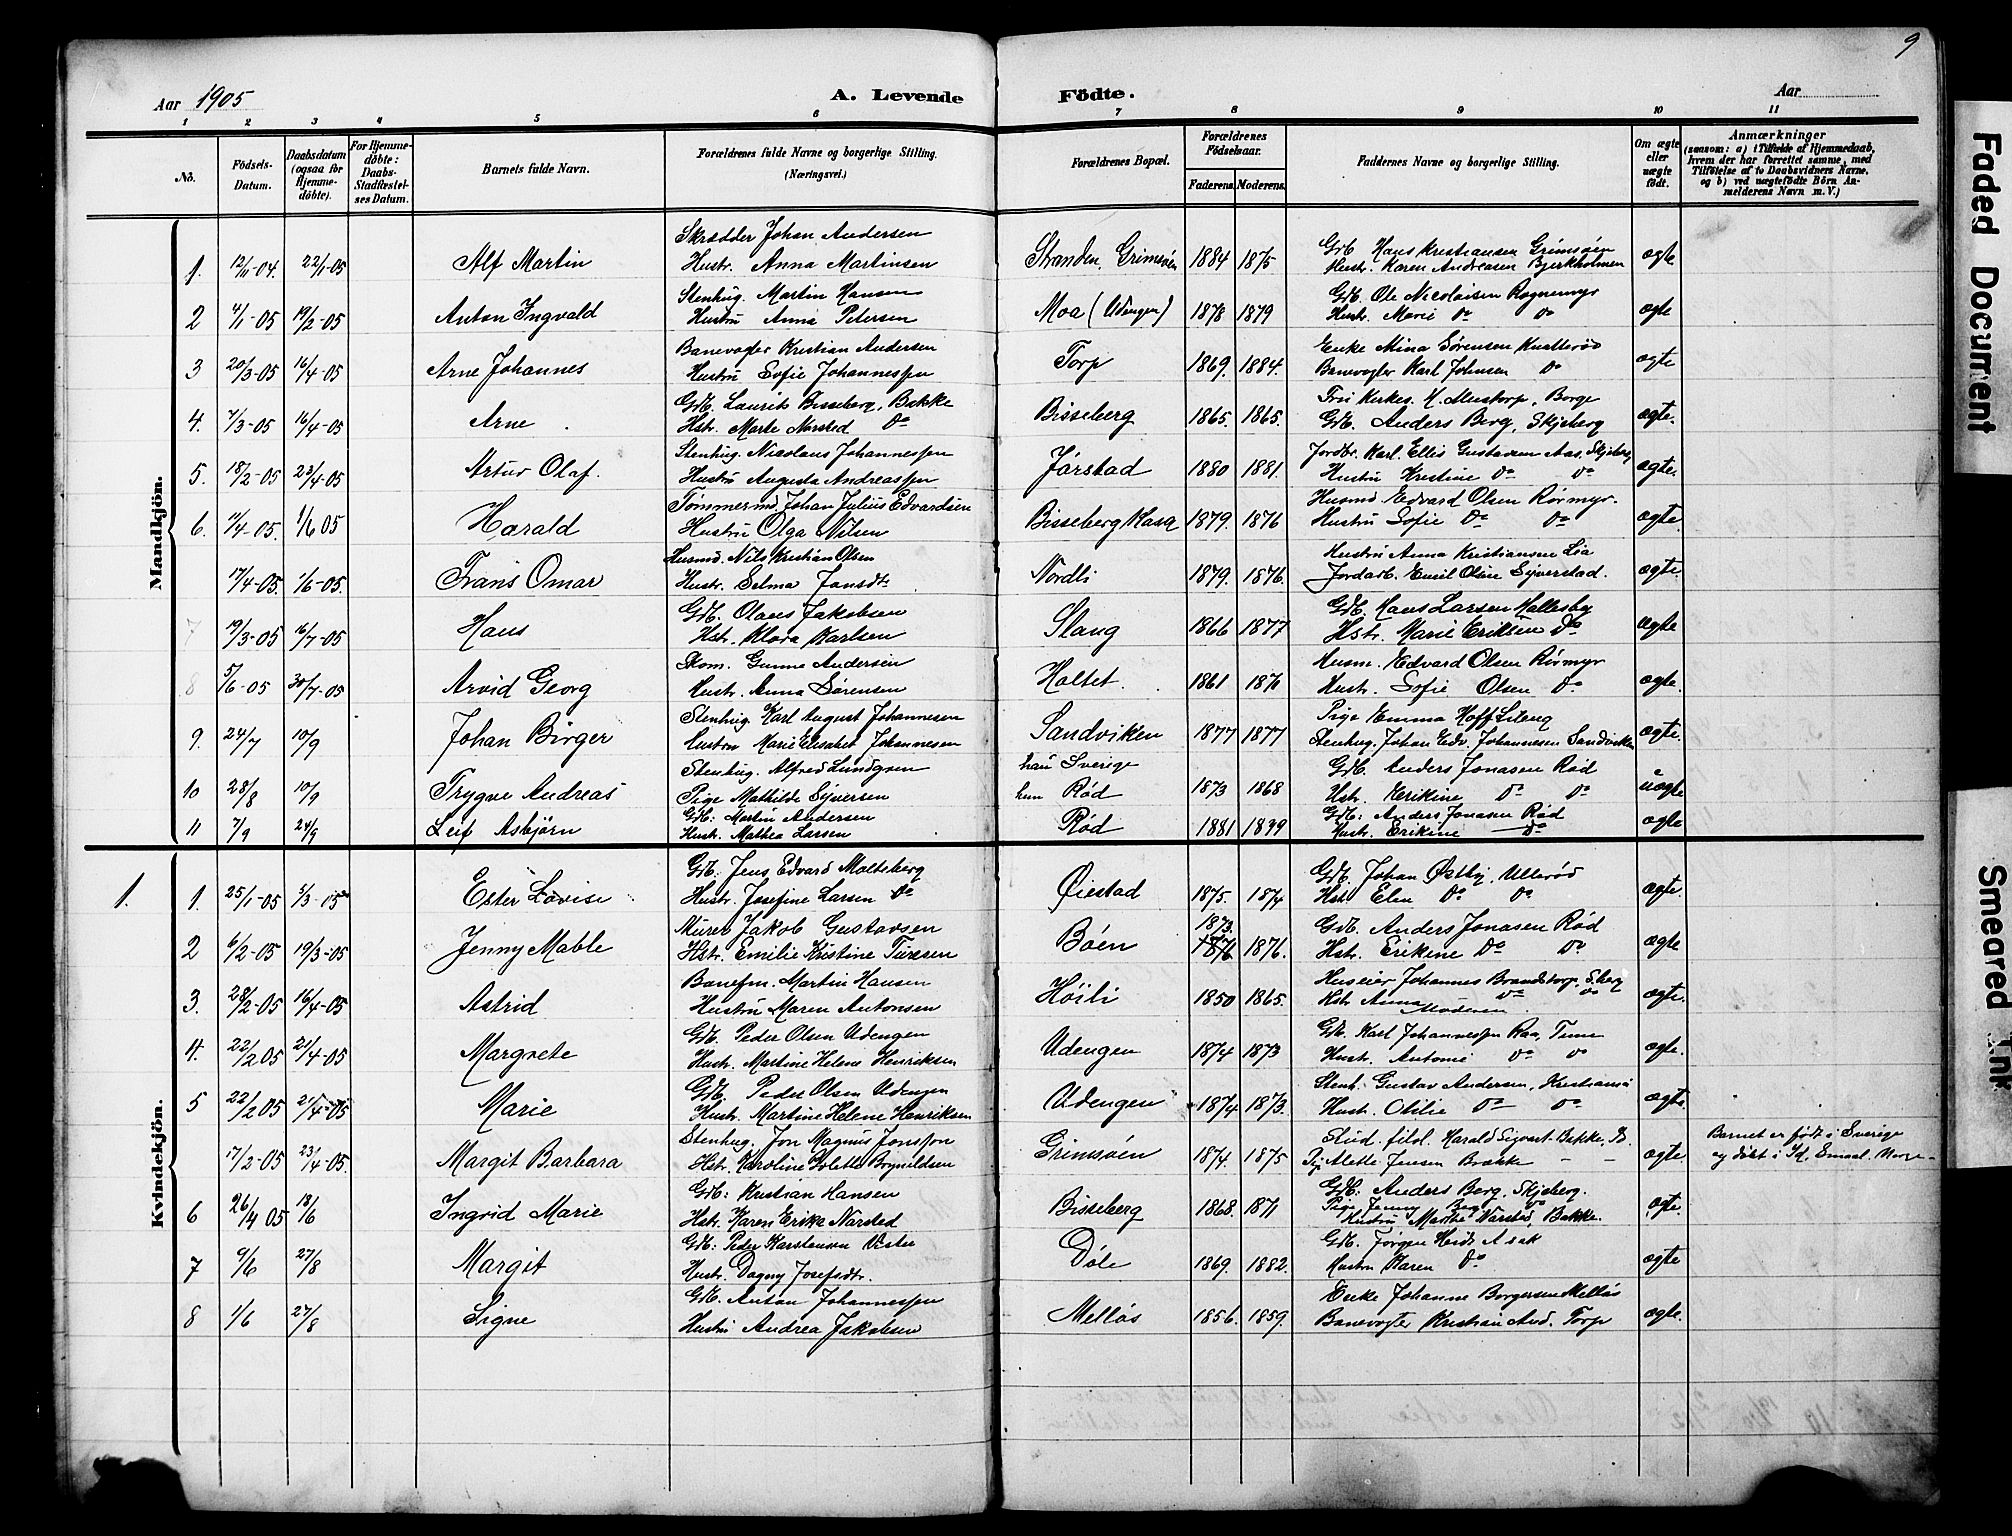 9
Aar 1905 A. Levende Födte. Aar
1 2 3 4 5 6 7 8 9 10 11
No.
Födsels-Datum.
Daabsdatum (ogsaa för Hjemmedöbte).
For Hjemmedöbte: Daabs-Stadfæstelses Datum.
Barnets fulde Navn.
Forældrenes fulde Navne og borgerlige Stilling. (Næringsvei.)
Forældrenes Bopæl.
Forældrenes Födselsaar.
Faderens. Moderens.
Faddernes Navne og borgerlige Stilling.
Om ægte eller uægte födt.
Anmærkninger
(saasom: a) i Tilfælde af Hjemmedaab, hvem der har forrettet samme, med Tilföielse af to Daabsvidners Navne, og b) ved uægtefödte Börn Anmelderens Navn m. V.)
Mandkjön.
Skrædder Johan Andersen
1. 12/11-04. 22/1-05 Alf Martin Hustr. Anna Martinsen Stranden, Grimsöen 1884 1875 Gdb. Hans Kristiansen Grimsöen ægte
Hustr. Karen Andreasen Bjerkholmen
Stenhug. Martin Hansen
2 4/1-05 19/2-05 Anton Ingvald Hustru Anna Petersen Moa (Udengen) 1878 1879 Gdb. Ole Nicolaisen Rognemyr ægte
Hustr. Marie Do Do
Banevogter Kristian Andersen
3 20/3-05 16/4-05 Arne Johannes Hustru Sofie Johannessen Torp 1869. 1884. Enke Mina Sørensen Knatterød ægte
Banevogter Karl Johnsen Do
Gdb. Laurits Bisseberg, Bakke
4. 7/3-05 16/4-05 Arne Hstr. Marte Narsted Do Bisseberg 1865. 1865. H. Borge ægte.
Gdb. Anders Berg, Skjeberg
Stenhug. Nicolaus Johannessen
5. 18/2-05 23/4-05 Artur Olaf. Hustru Augusta Andreassen Jørstad 1880 1881. Jordbr. Karl Ellis Gustavsen Aas, Skjeberg ægte.
Hustru Kristine Do Do
Tømmermd. Johan Julius Edvardsen
6. 11/4-05. 1/6 05 Harald Hustru Olga Nilsen Bisseberg Hasa 1879. 1876 Husmd. Edvard Olsen Rørmyr. ægte.
Hustru Sofie Do Do
Husmd. Nils Kristian Olsen
17/4-05. 1/6-05. Frans Omar Hustr. Selma Jansdt. Nordli 1879. 1876. Hustru Anna Kristiansen Lia ægte.
Jordarb. Emil Olsen Syverstad.
Gdb. Olaus Jakobsen
7 19/3-05 16/7-05 Hans Hstr. Klara Karlsen Slang 1866 1877 Gdb. Hans Larsen Hallesby ægte
Hstr. Marie Eriksen Do
Skom. Gunne Andersen
8 5/6-05 30/7-05 Arvid Georg Hustr. Anna Sørensen Holtet. 1861 1870 Husm. Edvard Olsen Rørmyr ægte.
Hustr. Sofie Olsen Do.
Stenhug. Karl August Johannesen
9. 24/7 10/9 Johan Birger Hustru Marie Elisabet Johannesen Sandviken 1877 1877 Pige Emma Hoff ægte.
Stenhug. Johan Edv. Johannesen Sandviken
Stenhug. Alfred Lundgren han Sverige
10 28/8 10/9 Trygve Andreas Pige Mathilde Syversen hun Rød 1873 1868 Gdb. Anders Jonasen Rød uægte
Hstr. Erikine Do Do
Gdb: Martin Andersen
11 7/9 24/9 Leif Asbjørn Hustr. Mathea Larsen Rød 1881 1879 Gdb: Anders Jonasen Rød ægte
Hustr. Erikine Do
Kvindekjön.
Gdb. Jens Edvard Molteberg
1. 1. 25/1-05 5/3-05 Ester Lovise Hustr. Josefine Larsen Do Øiestad 1875. 1874 Gdb. Johan Østby, Ullerød ægte.
Hstr. Elen Do Do
Murer Jakob Gustavsen 1873.
2 6/2-05 19/3-05 Jenny Mable Hstr. Emilie Kristine Turesen Bøen 1876 1876. Gdb. Anders Jonasen Rød ægte
Hstr. Erikine Do Do
Banefm. Martin Hansen
3. 28/2-05 16/4-05 Astrid Hustru Maren Antonsen Høili 1850 1865. Huseier Johannes Brandstorp, Sberg ægte.
Hstr. Anna Do Do
Moderen
Gdb. Peder Olsen Udengen
4. 22/2 05 21/4-05 Margrete Hustr. Martine Helene Henriksen Udengen 1874 1873 Gdb. Karl Johannessen Raa, Tune ægte.
Hustr. Antonie Do Do
Gdb. Peder Olsen Udengen
5 22/2 05 21/4-05 Marie Hustr. Martine Helene Henriksen Udengen 1874 1873. Stenh. Gustav Andersen, Kristiania ægte.
Hustr. Otilie Do Do
Stenhug. Jon Magnus Jonsson
17/2-05 23/4-05. Margit Barbara Hstr. Karoline Brynildsen Grimsøen 1874. 1875 Stud. filol. Harald Sigvart Bakke, ægte. Barnet er født i Sverige
Pg Alette Jensen Brække og døbt i Norge
Gdb: Kristian Hansen
6 26/4 05 18/6 Ingrid Marie Hstr. Karen Erike Narsted Bisseberg 1868. 1871 Gdb: Anders Berg, Skjeberg. ægte.
Pige Jenny Berg Do
Hustru Marthe Narsted, Bakke.
Gdb: Peder Karstensen Vister
7 9/6 27/8 Margit Hustr. Dagny Josefsdtr. Døle 1869. 1882. Gdb. Jørgen Heide Asak ægte
Hustru Karen Do
Gdb. Anton Johannessen
8 1/6 27/8 Signe Hustru Andrea Jakobsen Melløs 1856. 1859. Enke Johanne Borgersen Melløs ægte.
Banevogter Kristian And. Torp
Faded Document
Smeared Ink